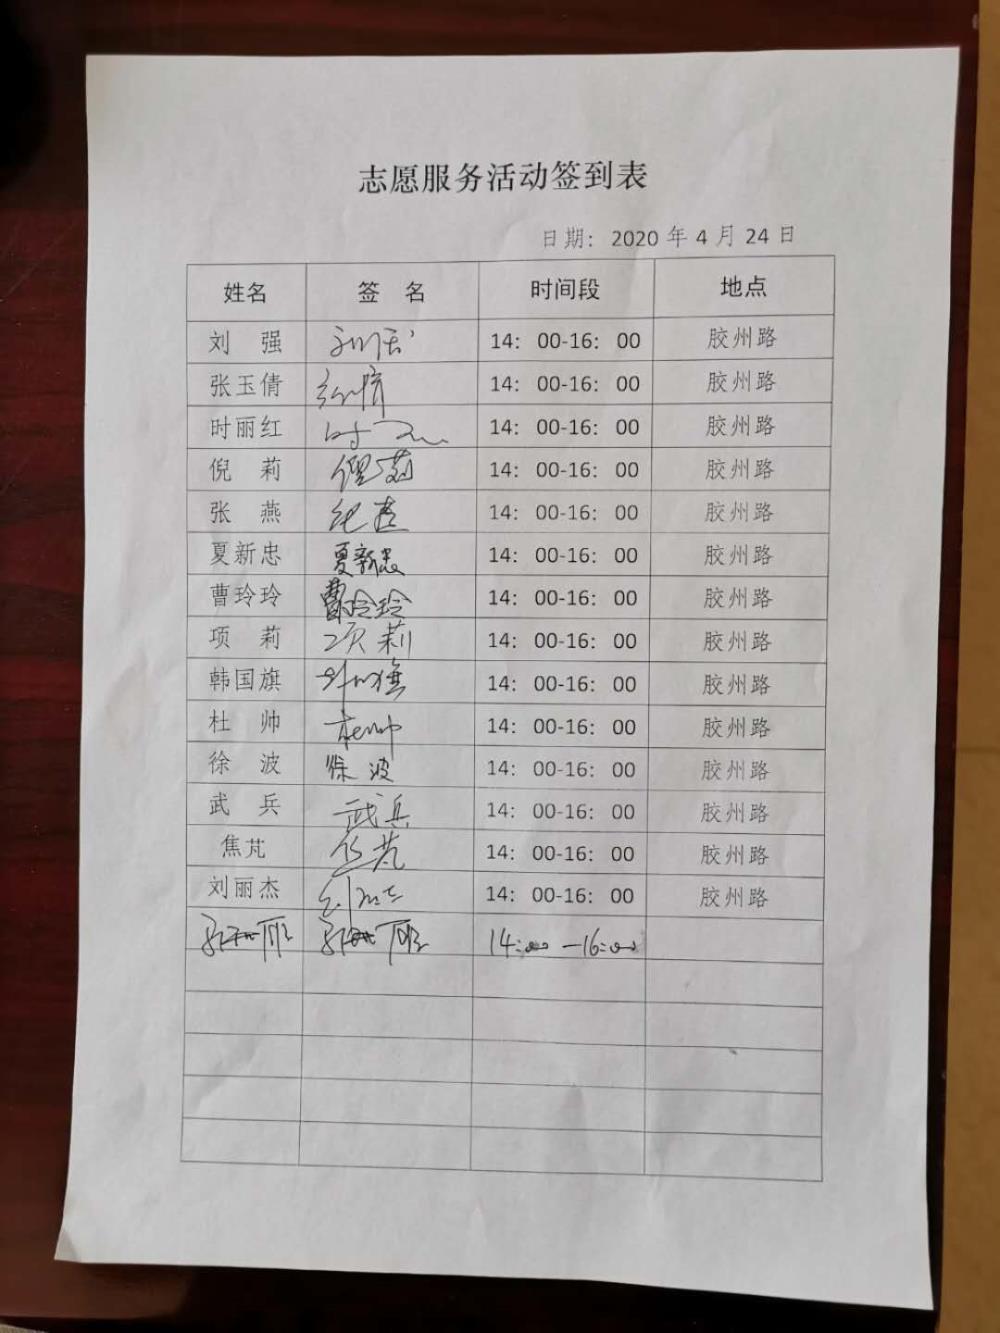 志愿服务活动签到表
日期： 2020 年 4 月 24 日
姓名 签 名 时间段 地点
刘 强 刘强 14：00-16：00 胶州路
张玉倩 14：00-16：00 胶州路
时丽红 时 14：00-16：00 胶州路
倪 莉 倪莉 14：00-16：00 胶州路
张 燕 张燕 14：00-16：00 胶州路
夏新忠 夏新忠 14：00-16：00 胶州路
曹玲玲 曹玲玲 14：00-16：00 胶州路
项 莉 项莉 14：00-16：00 胶州路
韩国旗 韩国旗 14：00-16：00 胶州路
杜 帅 杜帅 14：00-16：00 胶州路
徐 波 徐波 14：00-16：00 胶州路
武 兵 武兵 14：00-16：00 胶州路
焦芃 焦芃 14：00-16：00 胶州路
刘丽杰 刘丽杰 14：00-16：00 胶州路
14:00—16:00